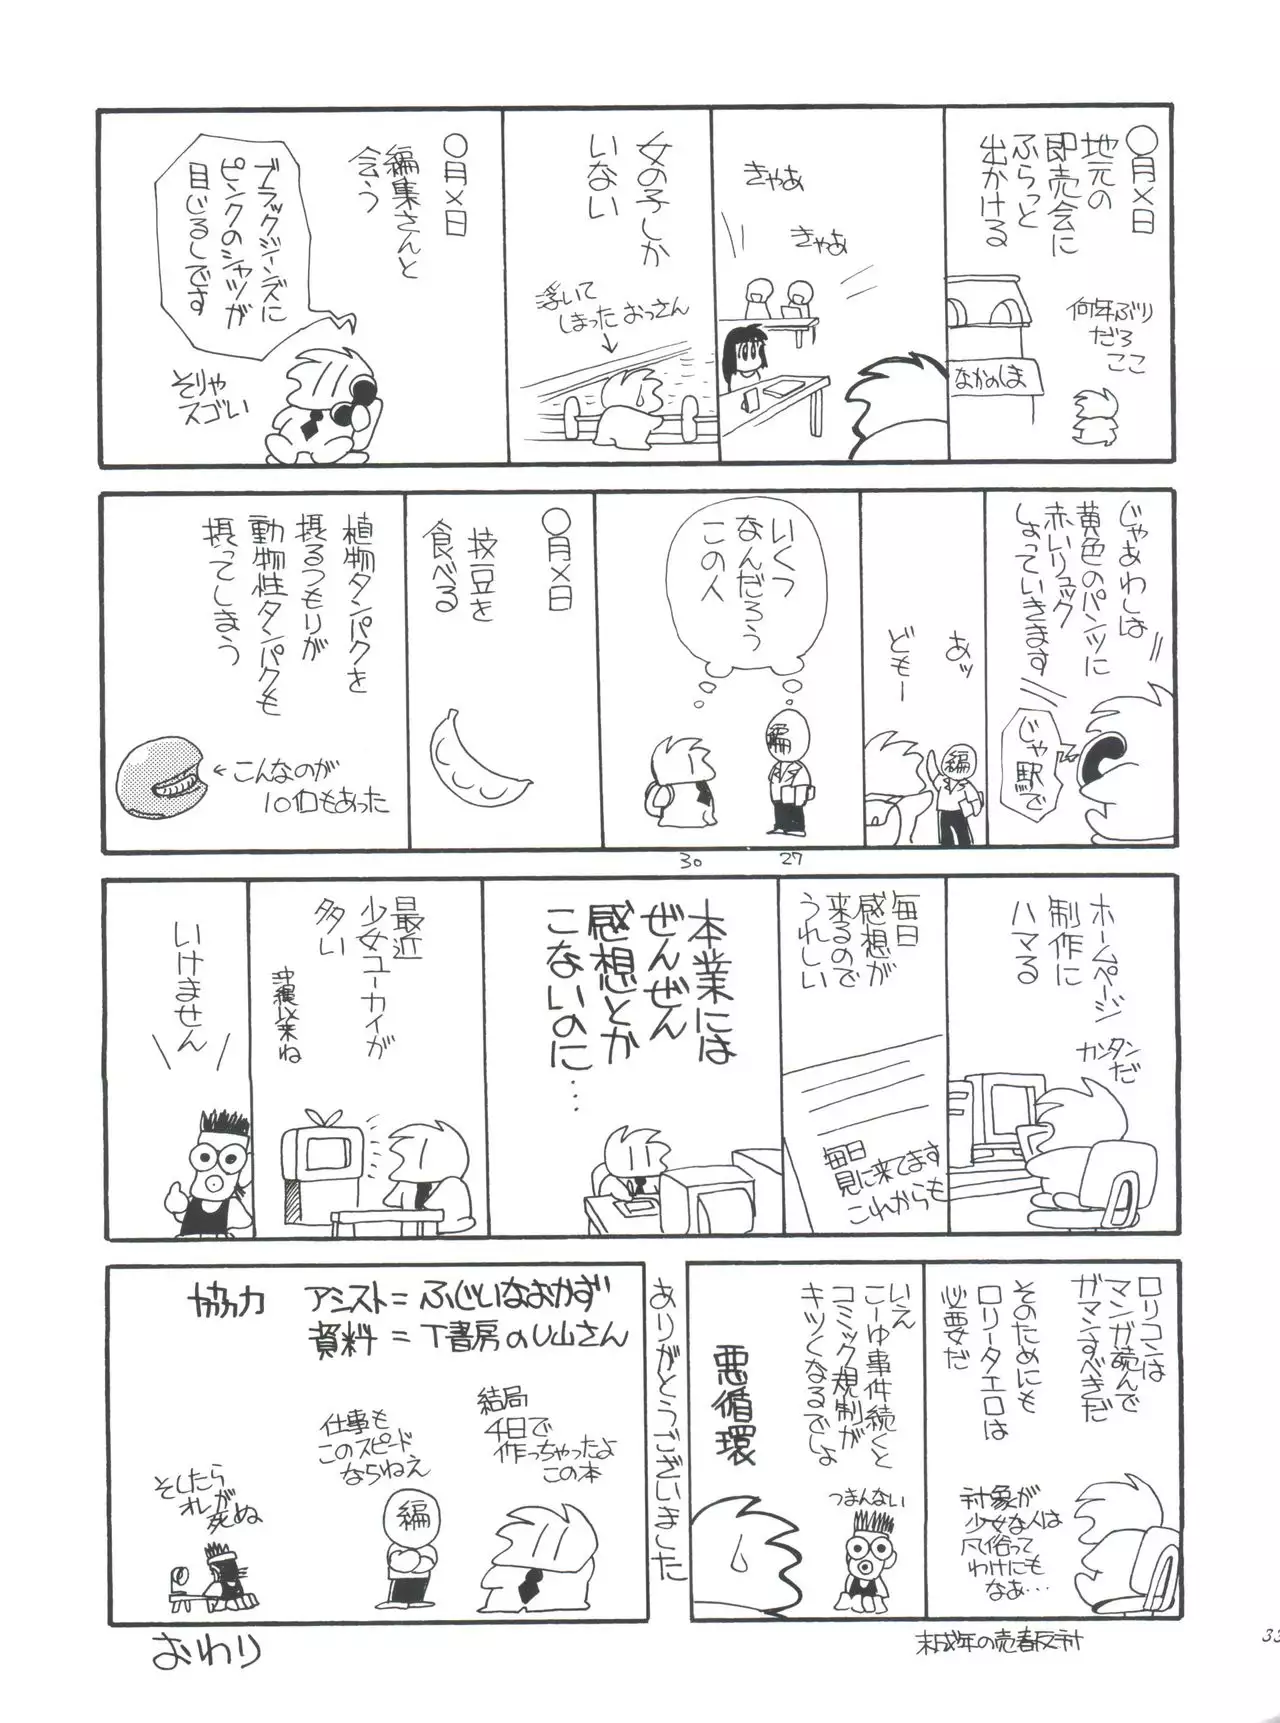 〇月×日
地元の
即売会に
ふらっと
出かける
何年ぶり
だろ
ここ
なかのしま
きゃあ
きゃあ
女の子しか
いない
浮いて
しまったおっさん
〇月×日
編集さんと
会う
ブラックジーンズに
ピンクのシャツが
目じるしです
そりゃ
スゴい
じゃあわしは
黄色のパンツに
赤いリュック
しょっていきます
じゃ
駅で
あッ
どもー
編
いくつ
なんだろう
この人
編
30
27
〇月×日
枝豆を
食べる
植物タンパクを
摂るつもりが
動物性タンパクも
摂ってしまう
←こんなのが
10個もあった
ホームページ
制作に
ハマる
カンタン
だ
毎日
感想が
来るので
うれしい
毎日
見に来てます
これからも
本業には
ぜんぜん
感想とか
こないのに…
最近
少女ユーカイが
多い
沖縄以来ね
いけません
ロリコンは
マンガ読んで
ガマンすべきだ
そのためにも
ロリータエロは
必要だ
対象が
少女な人は
風俗って
わけにも
なあ…
いえ
こーゆ事件続くと
コミック規制が
キツくなるでしょ
悪循環
つまんない
未成年の売春反対
ありがとうございました
協力
アシスト=ふじいなおかず
資料=T書房のU山さん
結局
4日で
作っちゃったよ
この本
仕事も
このスピード
ならねえ
編
そしたら
オレが
死ぬ
おわり
33